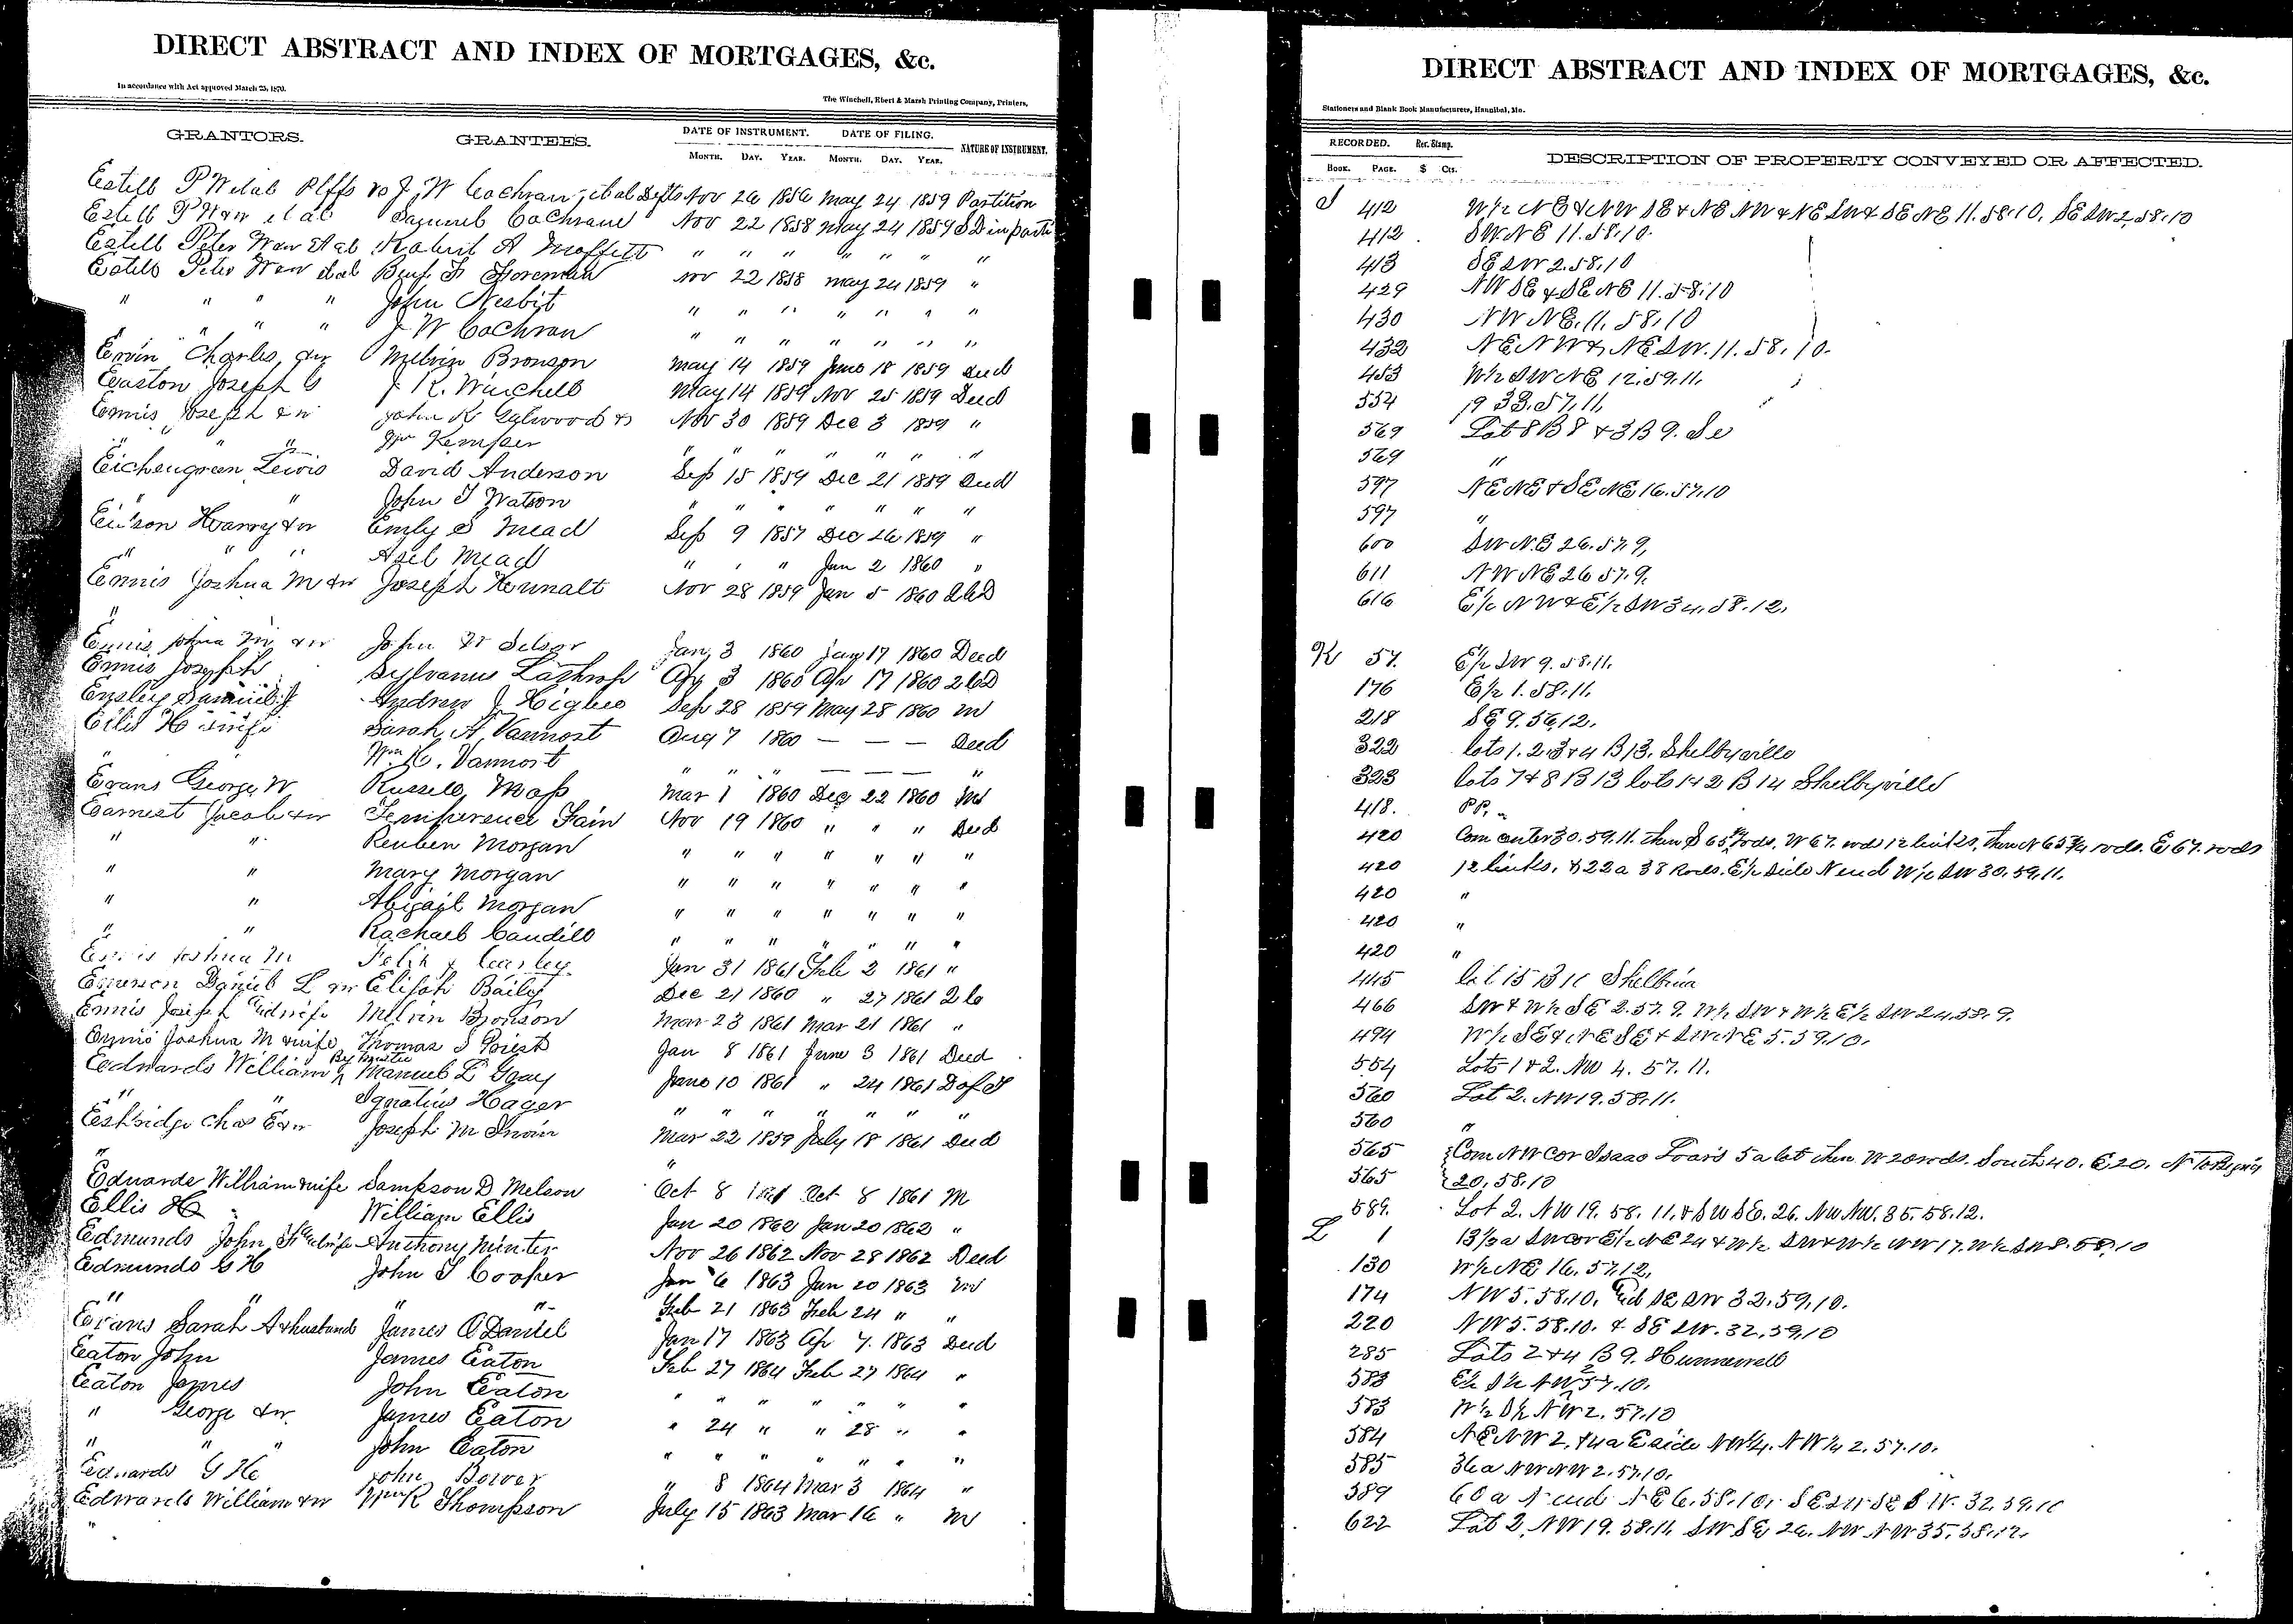 DIRECT ABSTRACT AND INDEX OF MORTGAGES, &c.
In accordance with Act approved March 25, 1870.
The Winchell, Ebert & Marsh Printing Company, Printers,
GRANTORS. GRANTEES. DATE OF INSTRUMENT. DATE OF FILING. NATURE OF INSTRUMENT.
MONTH. DAY. YEAR. MONTH. DAY. YEAR.
Estell P W et al Plffs vs J. W Cochran, et al Defts Nov 26 1856 May 24 1859 Partition
Estell P W & w et al Samuel Cochrane Nov 22 1858 May 24 1859 S D in parti
Estell Peter W & w et al Robert A Moffett " " " " " " "
Estell Peter W & w et al Benj. F Foreman Nov 22 1858 May 24 1859 "
" " " " John Nesbit " " " " " " "
" " " J W Cochran " " " " " " "
Ervin Charles, & w Melvin Bronson May 14 1859 June 18 1859 Deed
Easton Joseph G J. K. Winchell May 14 1859 Nov 25 1859 Deed
Ennis Joseph & w John K Nov 30 1859 Dec 3 1859 "
" " " Wm Kemper " " " " " " "
Eichengreen Lewis David Anderson Sep 15 1859 Dec 21 1859 Deed
" " John T Watson " " " " " " "
Harry & w Emly S Mead Sep 9 1857 Dec 26 1859 "
" " " Asel Mead " " " Jan 2 1860 "
Ennis Joshua M & w Joseph Hunalt Nov 28 1859 Jan 5 1860
"
Ennis Joshua M & w John W Selsor Jan 3 1860 Jany 17 1860 Deed
Ennis Joseph Sylvanus Lathrop Apr 3 1860 Apr 17 1860
Ensley Samuel J Andrew J Higbee Sep 28 1859 May 28 1860 M
H & wife Sarah A Vannost Aug 7 1860 — — — Deed
" Wm H. Vannost " " " — — — "
Evans George W Russell Moss Mar 1 1860 Dec 22 1860 M
Earnest Jacob & w Temperence Fain Nov 19 1860 " " " Deed
" " Reuben Morgan " " " " " " "
" " Mary Morgan " " " " " " "
" " Abigail Morgan " " " " " " "
" " Rachael Caudill " " " " " " "
Ennis Joshua M Felix Jan 31 1861 Feb 2 1861 "
Emerson Daniel L & w Elijah Baily Dec 21 1860 " 27 1861
Ennis Joseph and wife Melvin Bronson Mar 23 1861 Mar 21 1861 "
Ennis Joshua M & wife Thomas S Priest Jan 8 1861 June 3 1861 Deed
Edwards William By trustee Manuel L Gray June 10 1861 " 24 1861 D of T
" " Ignatius Hager " " " " " " "
Eskridge Chas E & w Joseph M Irwin Mar 22 1859 July 18 1861 Deed
"
Edwards William & wife Sampson D Melson Oct 8 1861 Oct 8 1861 M
Ellis H William Ellis Jan 20 1862 Jan 20 1862 "
Edmunds John & wife Anthony Minter Nov 26 1862 Nov 28 1862 Deed
Edmunds G H John S Cooper Jan 6 1863 Jan 20 1863 M
" " " " Feb 21 1863 Feb 24 " "
Evans Sarah A & husband James O Daniel Jan 17 1863 Apr 7. 1863 Deed
Eaton John James Eaton Feb 27 1864 Feb 27 1864 "
Eaton James John Eaton " " " " " " "
" George & w James Eaton " 24 " " 28 " "
" " " John Eaton " " " " " " "
Edwards G H John Bower " 8 1864 Mar 3 1864 "
Edwards William & w Wm R Thompson July 15 1863 Mar 16 " M
"
DIRECT ABSTRACT AND INDEX OF MORTGAGES, &c.
Stationers and Blank Book Manufacturers, Hannibal, Mo.
RECORDED. Rev. Stamp. DESCRIPTION OF PROPERTY CONVEYED OR AFFECTED.
BOOK. PAGE. $ Cts.
J 412 W½ NE & NW SE & NE NW & NE SW & SE NE 11.58.10, SE SW 2,58.10
412 SW NE 11.58.10.
413 SE SW 2.58.10
429 NW SE & SE NE 11.58.10
430 NW NE. 11. 58.10
432 NE NW & NE SW. 11. 58. 10.
453 W½ SW NE 12.59.11.
554 19 33.57.11.
569 Lot 8 B 8 & 3 B 9.
569 "
597 NE NE & SE NE 16.57.10
597 "
600 SW NE 26.57.9,
611 NW NE 26 57.9.
616 E½ NW & E½ SW 34.58.12.
K 57. E½ SW 9.58.11.
176 E½ 1.58.11.
218 SE 9.56.12.
322 lots 1.2.3 & 4 B 13. Shelbyville
323 lots 7 & 8 B 13 lots 1 & 2 B 14 Shelbyville
418. PP.
420 Com center 30.59.11. then S 65¾ rods. W 67. rods 12 links, then N 65¾ rods. E 67. rods
420 12 links. & 22 a 38 Rods. E½ side N end W½ SW 30.59.11.
420 "
420 "
420 "
445 lot 15 B 11 Shelbina
466 SW & W½ SE 2.57.9. W½ SW & W½ E½ SW 24.58.9.
494 W½ SE & NE SE & SW NE 5.59.10.
554 Lots 1 & 2. NW 4. 57. 11.
560 Lot 2. NW 19.58.11.
560 "
565 Com NW Cor Isaac 5 a lot then W 20 rods. South 40. E 20. N To
565 20,58.10
589. Lot 2. NW 19. 58. 11. & SW SE. 26. NW NW. 35.58.12.
L 1 13⅓ a SW cor E½ NE 24 & W½ SW & W½ NW 17. W½ SW 8.58.10
130 W½ NE 16.57.12,
174 NW 5.58.10. and SE SW 32.59.10.
220 NW 5.58.10. & SE SW. 32.59.10
285 Lots 2 & 4 B 9. Hunnewell
583 E½ S½ NW 2 57.10.
583 W½ S½ NW 2. 57.10
584 NE NW 2. & 4 a E side NW¼. NW¼ 2. 57.10.
585 36 a NW NW 2.57.10.
589 60 a N end NE 6.58.10. 32.59.10
622 Lot 2. NW 19.58.11. SW SE 26. NW NW 35.58.12.